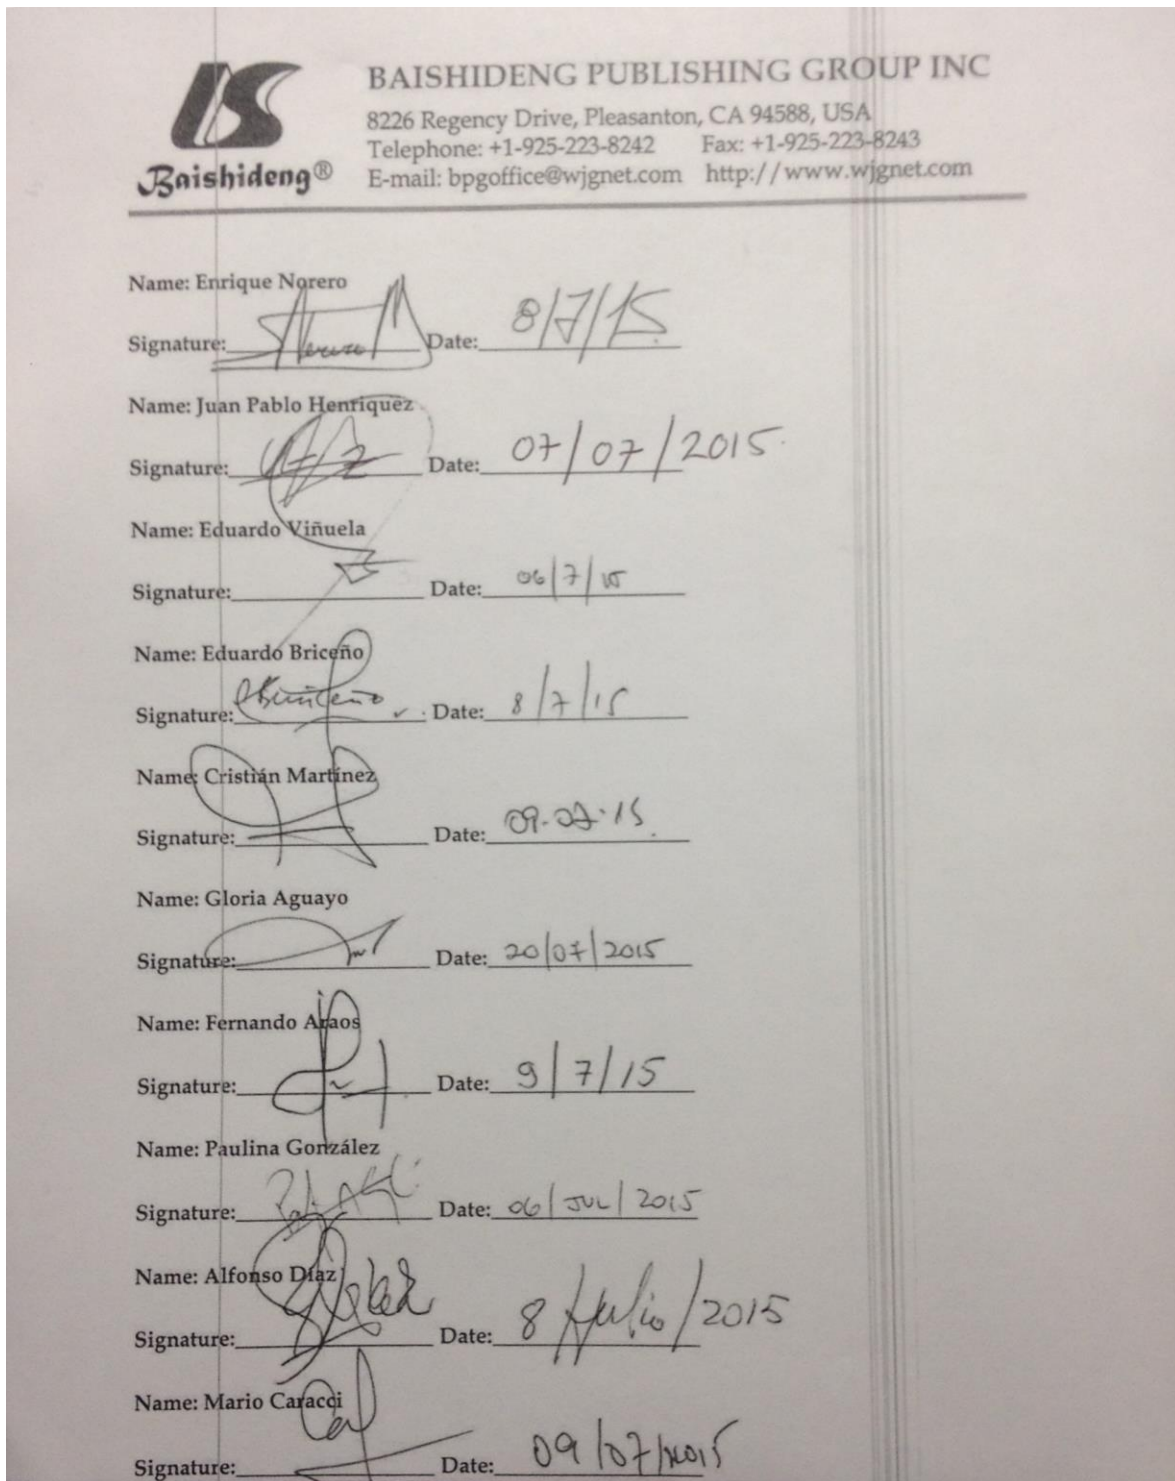 BAISHIDENG PUBLISHING GROUP INC
8226 Regency Drive, Pleasanton, CA 94588, USA
Telephone: +1-925-223-8242 Fax: +1-925-223-8243
Baishideng® E-mail: bpgoffice@wjgnet.com http://www.wjgnet.com
Name: Enrique Norero
Signature: Date: 8/7/15
Name: Juan Pablo Henríquez
Signature: Date: 07/07/2015
Name: Eduardo Viñuela
Signature: Date: 06/7/15
Name: Eduardo Briceño
Signature: Date: 8/7/15
Name: Cristián Martínez
Signature: Date: 09-07-15
Name: Gloria Aguayo
Signature: Date: 20/07/2015
Name: Fernando Araos
Signature: Date: 9/7/15
Name: Paulina González
Signature: Date: 06/JUL/2015
Name: Alfonso Díaz
Signature: Date: 8/Julio/2015
Name: Mario Caracci
Signature: Date: 09/07/2015